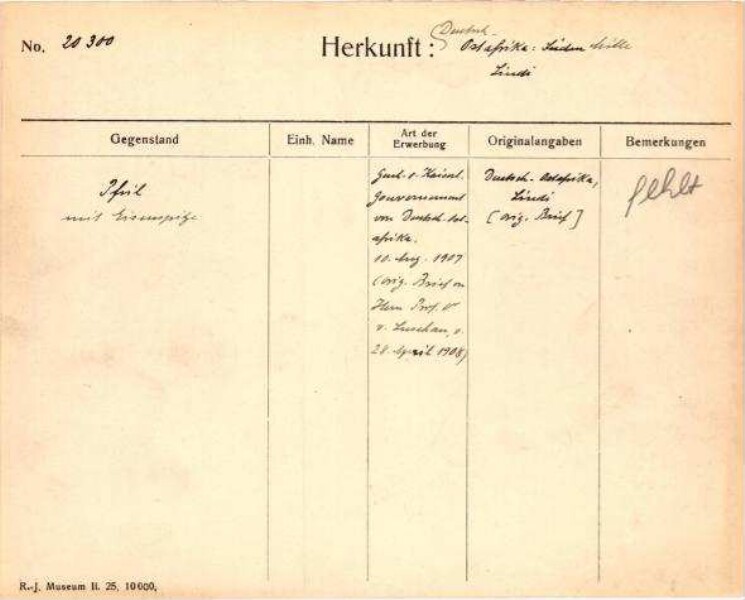 No. 20 300
Herkunft : Deutsch-
Ostafrika: Süden Mitte
Lindi
Gegenstand
Einh. Name
Art der
Erwerbung
Originalangaben
Bemerkungen
Pfeil
mit Eisenspitze
Gesch. v. Kaiserl.
Gouvernement
von Deutsch-Ost-
afrika.
10. Aug. 1907
(orig. Brief an
Herrn Prof. Dr
v. Luschan, v.
28. April 1908)
Deutsch-Ostafrika,
Lindi
(orig. Brief]
fehlt
R.-J. Museum II. 25, 10000,